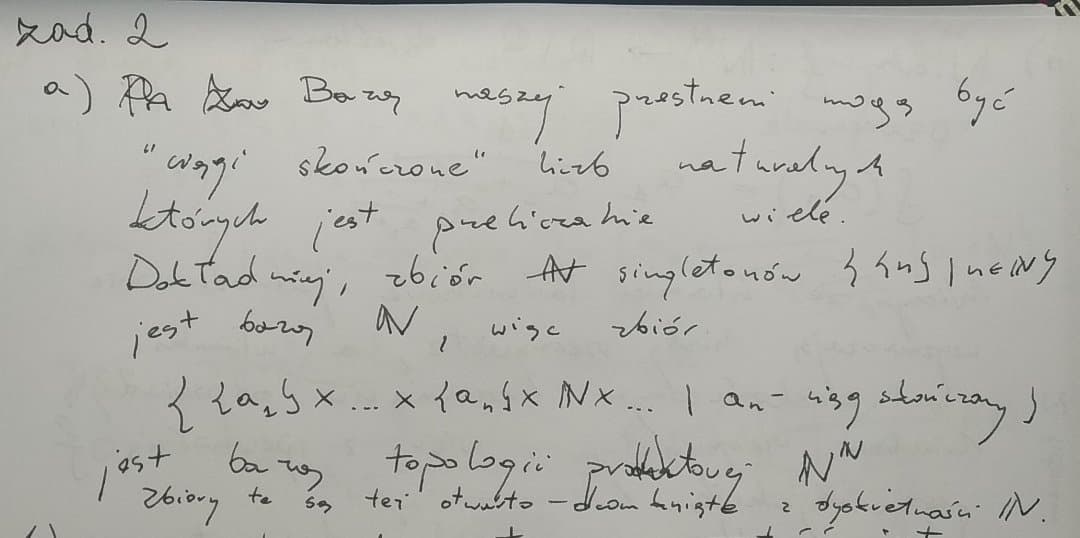 zad. 2
a) Bazą naszej przestrzeni mogą być
"ciągi skończone" liczb naturalnych
których jest przeliczalnie wiele.
Dokładniej, zbiór singletonów { {n} | n∈ℕ}
jest bazą ℕ, więc zbiór
{ {a₁} × ... × {aₙ} × ℕ × ... | aₙ - ciąg skończony }
jest bazą topologii produktowej ℕ^ℕ
zbiory te są też otwarto-domknięte z dyskretności ℕ.